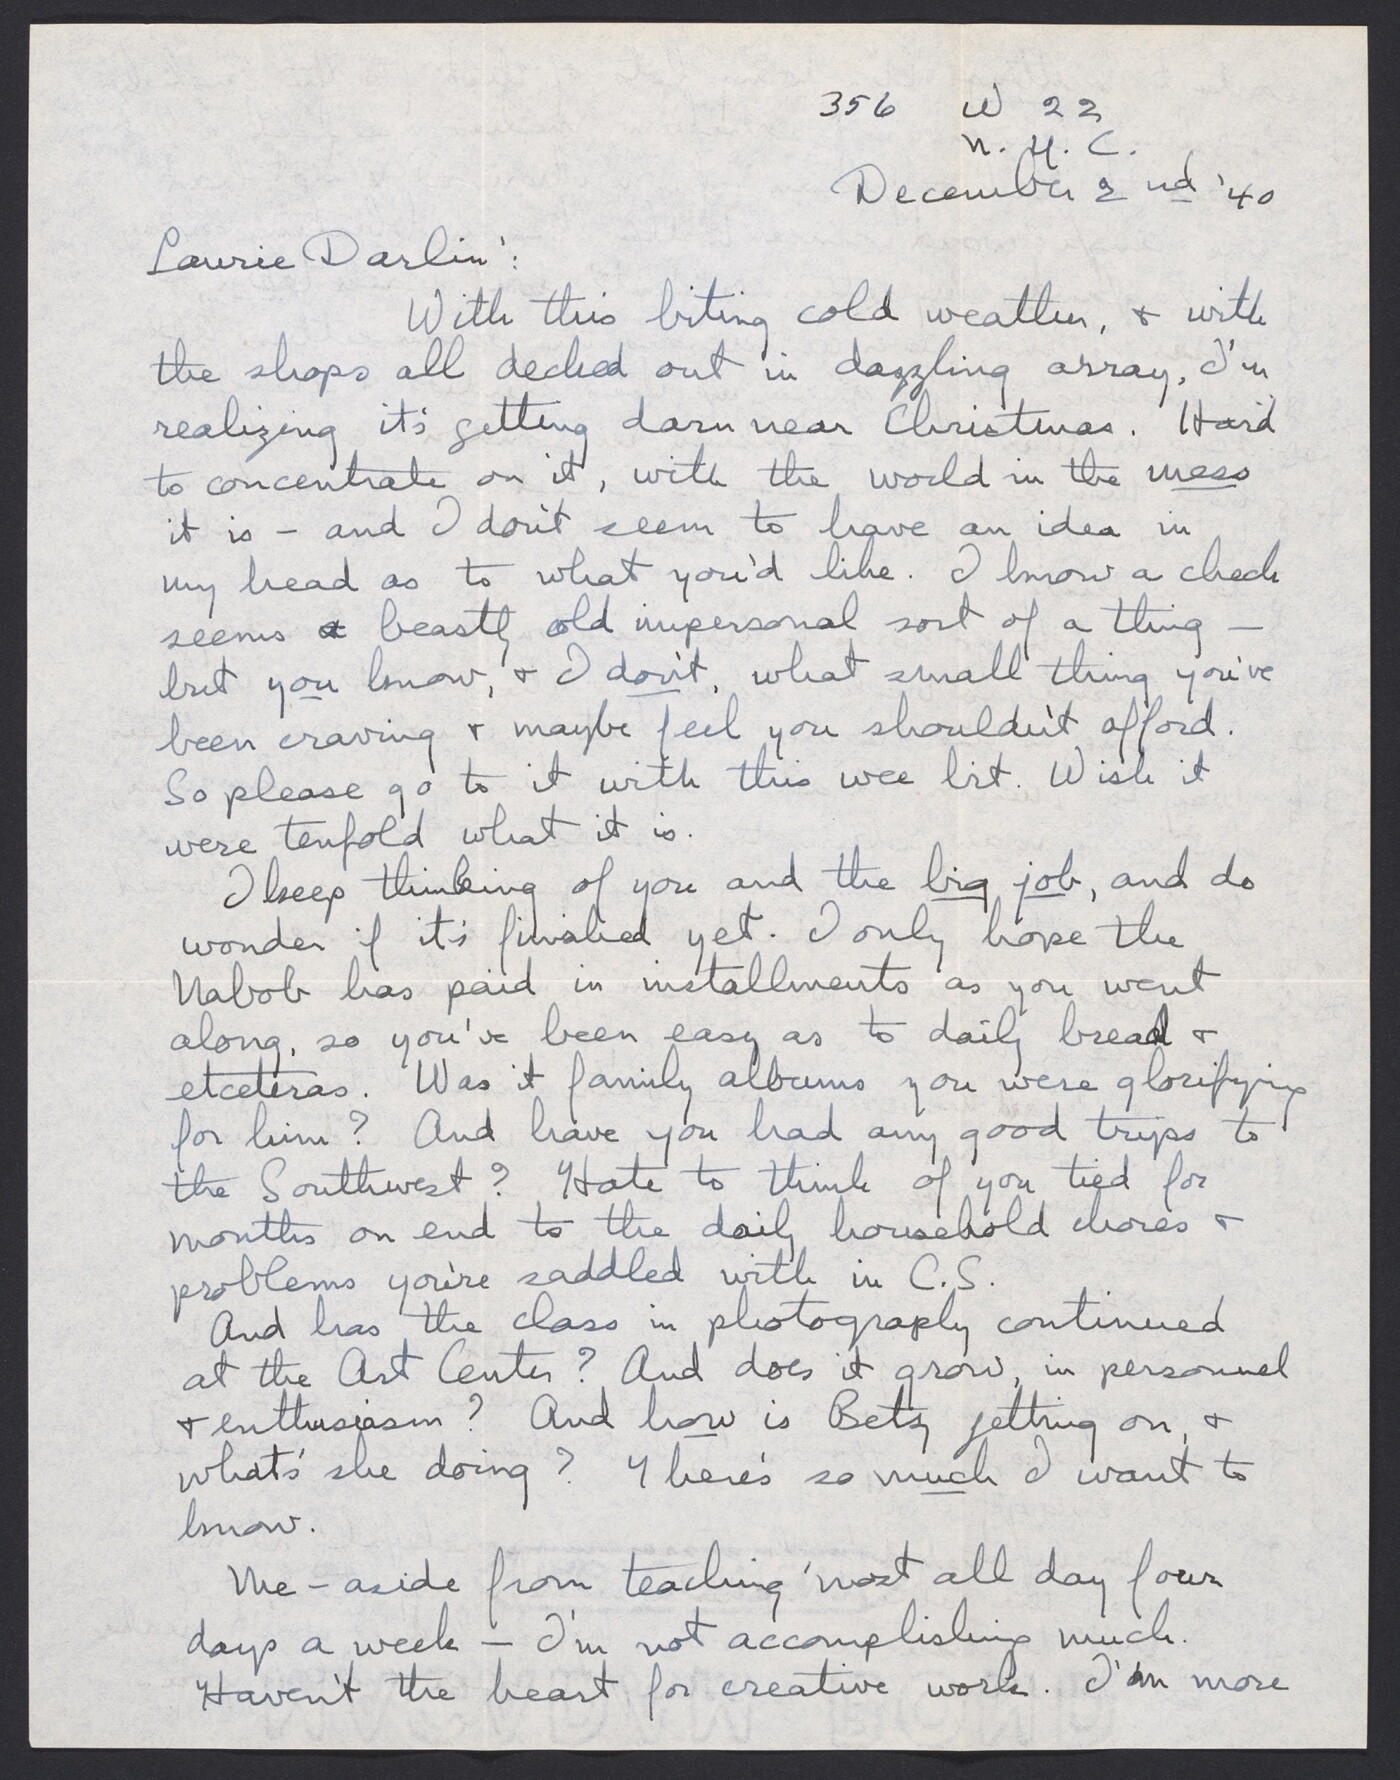 356 W 22
N. Y. C.
December 2nd '40
Laurie Darlin':
With this biting cold weather, & with
the shops all decked out in dazzling array, I'm
realizing it's getting darn near Christmas. Hard
to concentrate on it, with the world in the mess
it is – and I don't seem to have an idea in
my head as to what you'd like. I know a check
seems a beastly old impersonal sort of a thing –
but you know, & I don't, what small thing you've
been craving & maybe feel you shouldn't afford.
So please go to it with this wee bit. Wish it
were tenfold what it is.
I keep thinking of you and the big job, and do
wonder if it's finished yet. I only hope the
Nabob has paid in installments as you went
along, so you've been easy as to daily bread &
etceteras. Was it family albums you were glorifying
for him? And have you had any good trips to
the Southwest? Hate to think of you tied for
months on end to the daily household chores &
problems you're saddled with in C.S.
And has the class in photography continued
at the Art Center? And does it grow, in personnel
& enthusiasm? And how is Betsy getting on, &
what's she doing? There's so much I want to
know.
Me – aside from teaching 'most all day four
days a week – I'm not accomplishing much.
Haven't the heart for creative work. I'm more